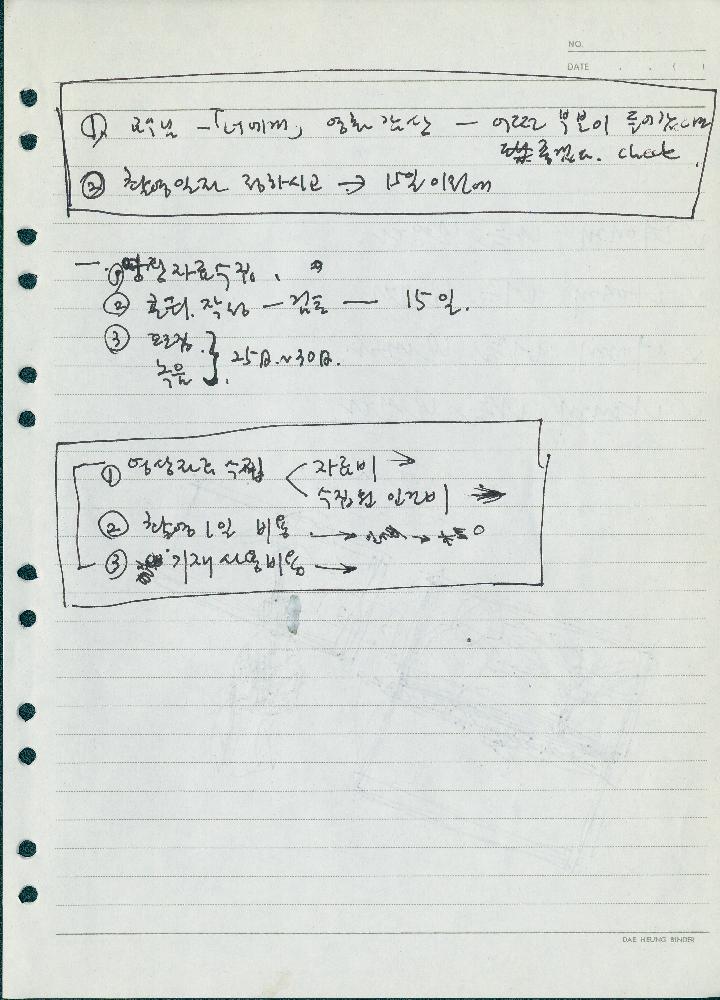 NO.
DATE . . ( )
① 「너에게」 영화 감상 — 어떤 부분이 들어갔으면
좋겠는지. check
② 촬영일자 정하시고 → 15일 이전에
① 영상자료수집.
② 콘티. 작성 — 검토 — 15일.
③ 편집.
녹음 } 25日.~30日.
① 영상자료 수집 < 자료비 →
수집원 인건비 →
② 촬영 1일 비용 →
③ 기재 사용비용 →
DAE HEUNG BINDER